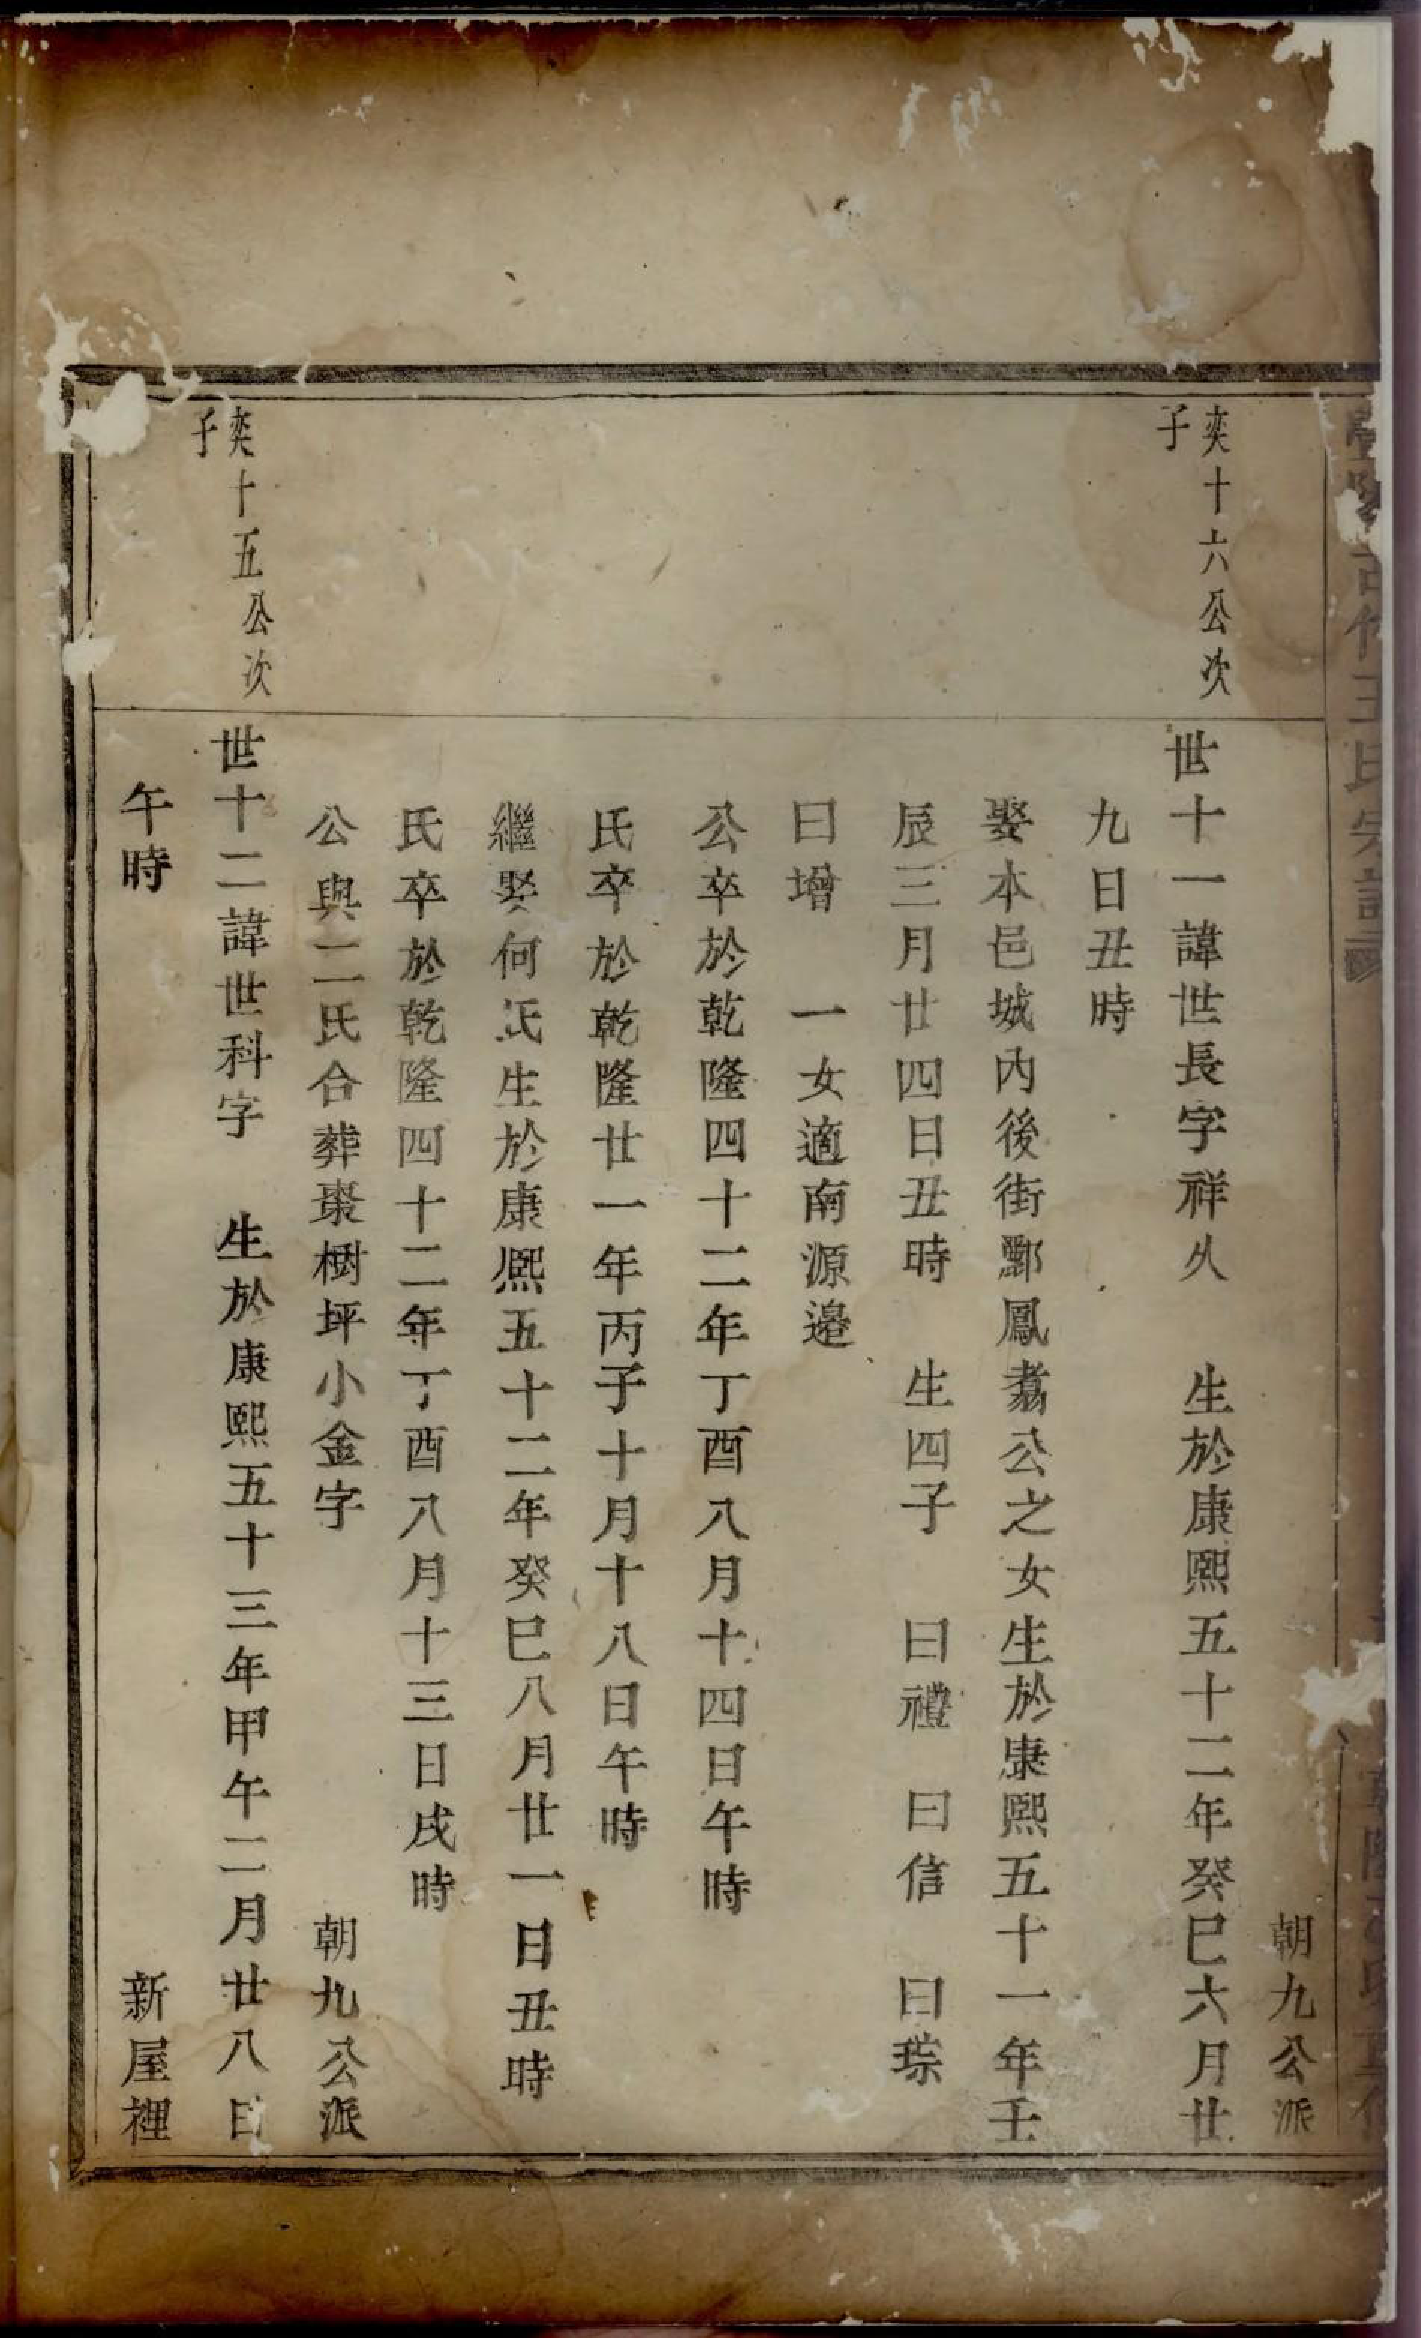 王氏宗譜
朝九公派
奕十六公次
子
世十一諱世長字祥火 生於康熙五十二年癸巳六月廿
九日丑時
娶本邑城內後街鄷鳳翥公之女生於康熙五十一年壬
辰三月廿四日丑時 生四子 曰禮 曰信 曰琮
曰增 一女適南源邉
公卒於乾隆四十二年丁酉八月十四日午時
氏卒於乾隆廿一年丙子十月十八日午時
繼娶何氏生於康熈五十二年癸巳八月廿一日丑時
氏卒於乾隆四十二年丁酉八月十三日戌時
公與二氏合葬棗樹坪小金字 朝九公派
奕十五公次
子
世十二諱世科字 生於康熙五十三年甲午二月廿八日
午時 新屋裡